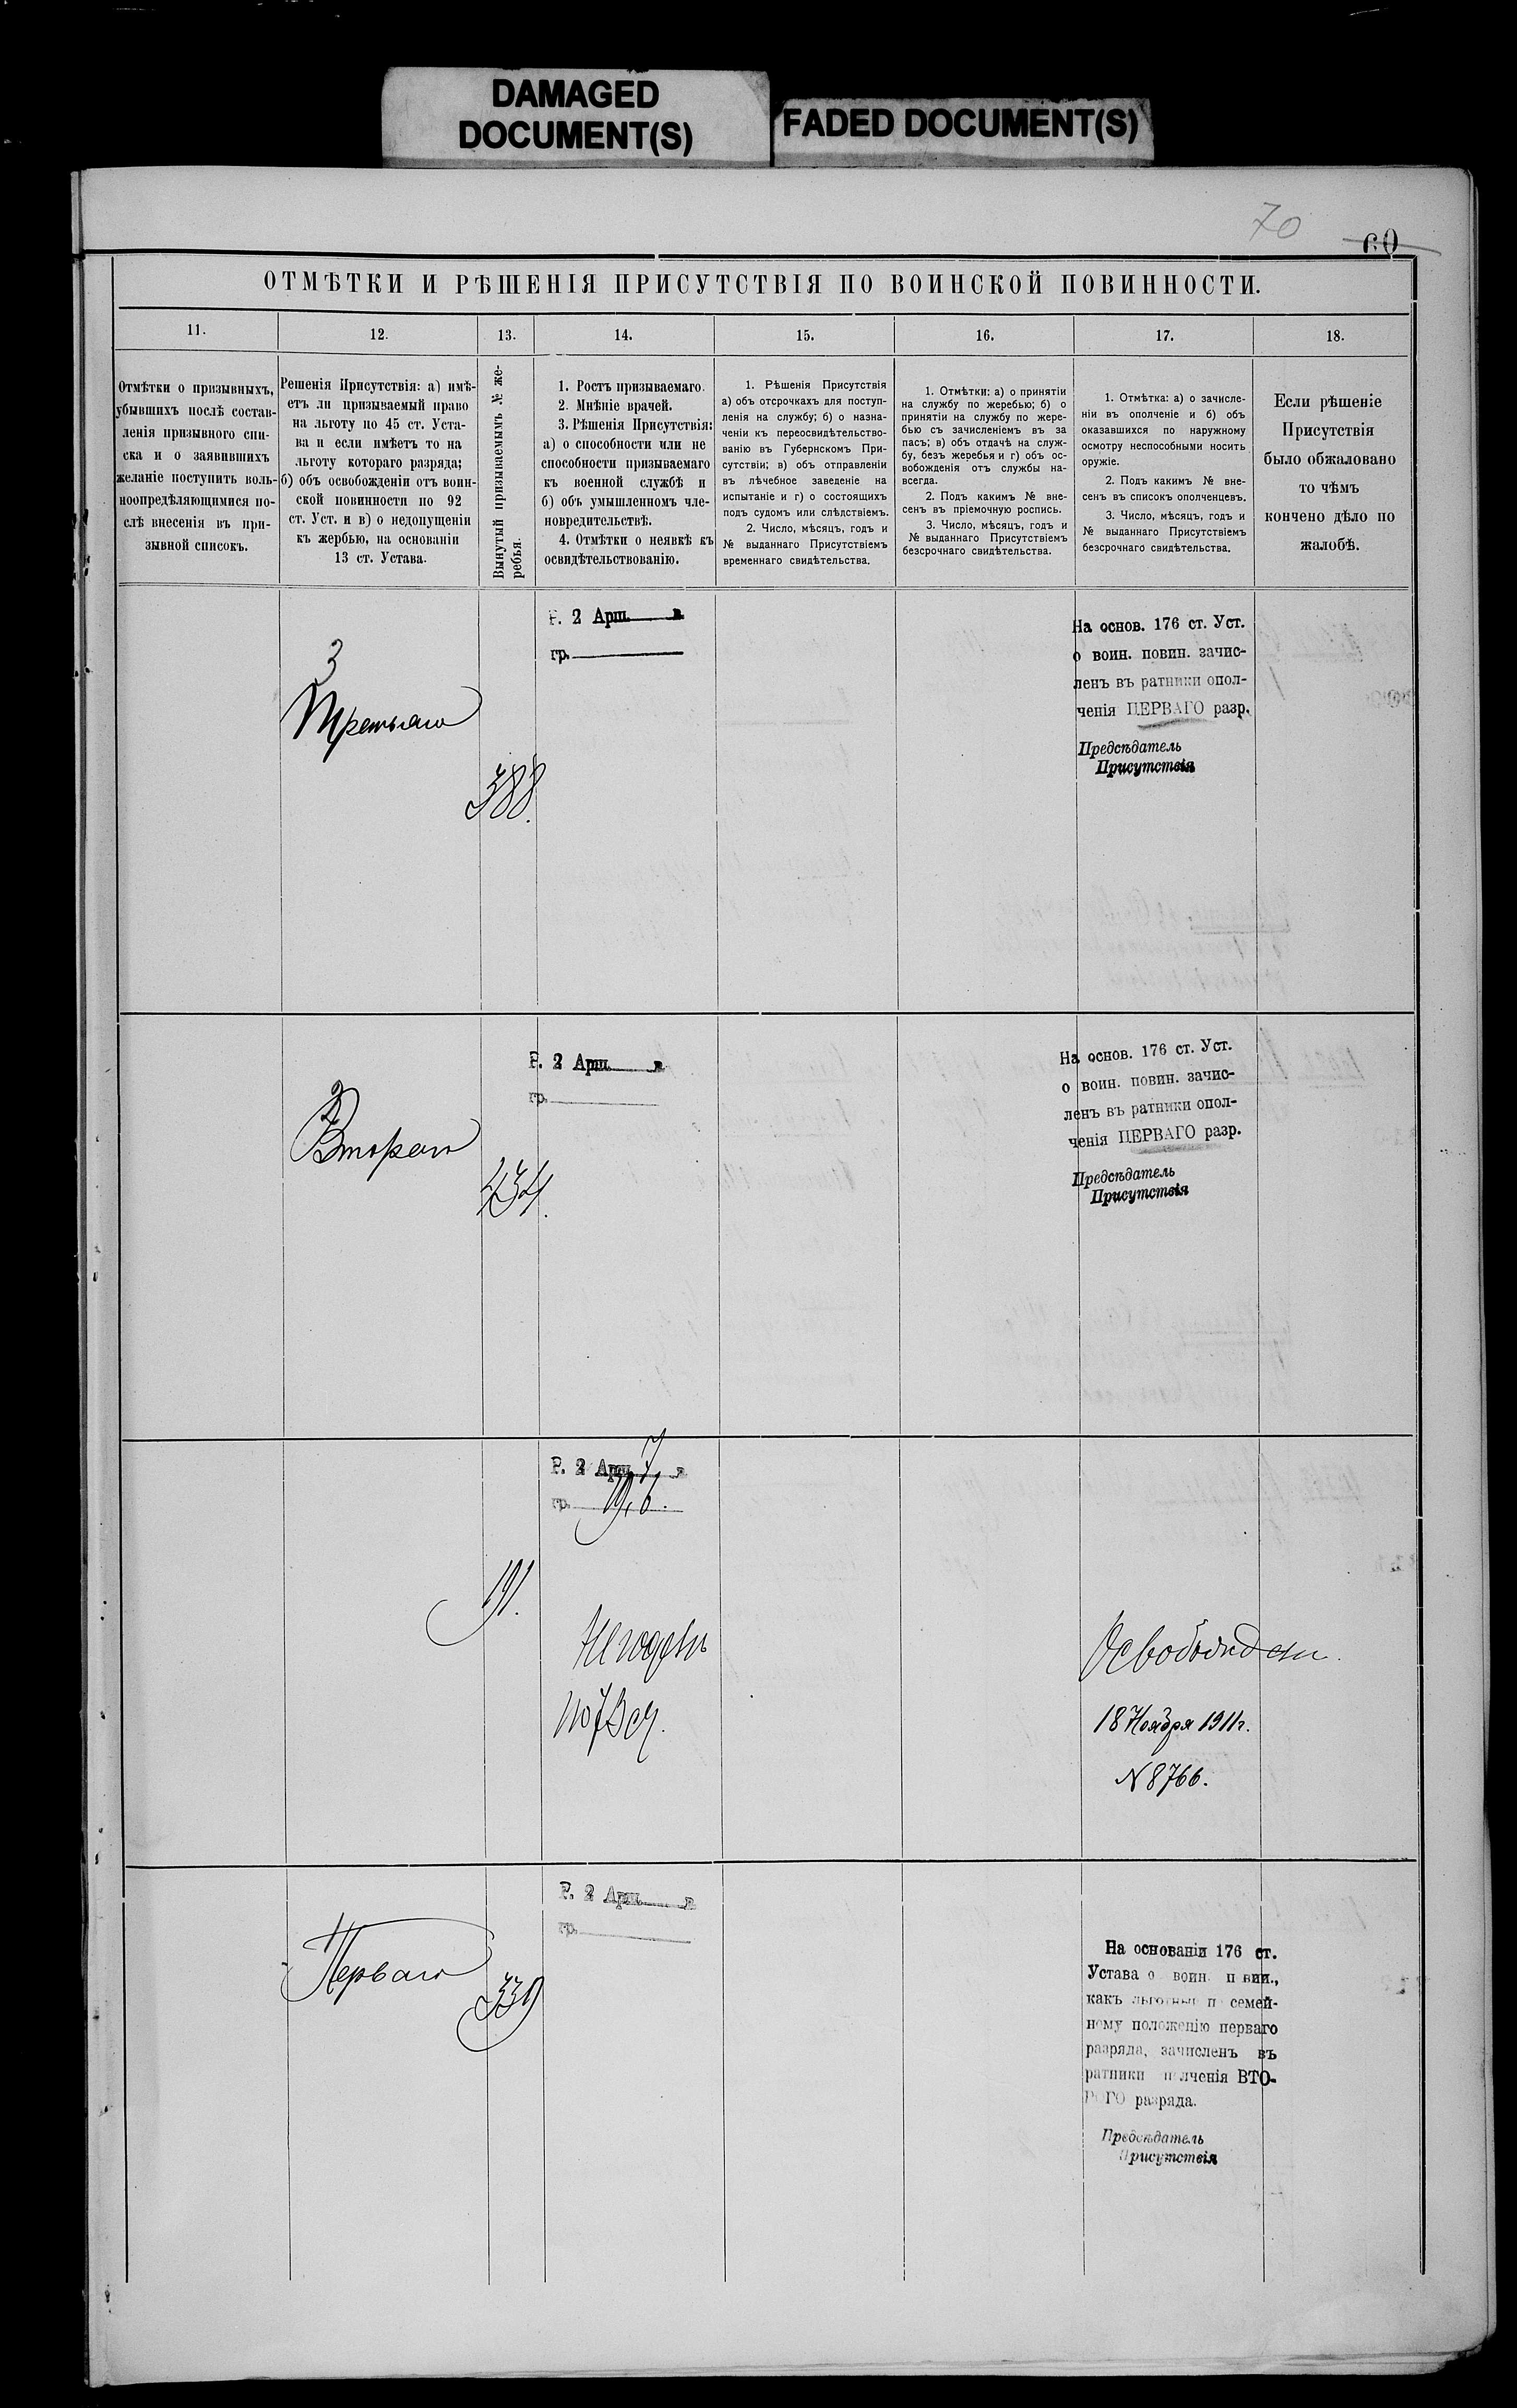 DAMAGED
DOCUMENT(S)
FADED DOCUMENT(S)
70
60
ОТМѢТКИ И РѢШЕНІЯ ПРИСУТСТВІЯ ПО ВОИНСКОЙ ПОВИННОСТИ.
11.
12.
13.
14.
15.
16.
17.
18.
Отмѣтки о призывныхъ,
убывшихъ послѣ состав-
ленія призывного спи-
ска и о заявившихъ
желаніе поступить воль-
ноопредѣляющимися по-
слѣ внесенія въ при-
зывной списокъ.
Решенія Присутствія: а) имѣ-
етъ ли призываемый право
на льготу по 45 ст. Уста-
ва и если имѣетъ то на
льготу котораго разряда;
б) объ освобожденіи отъ воин-
ской повинности по 92
ст. Уст. и в) о недопущеніи
къ жербью, на основаніи
13 ст. Устава.
Вынутый призываемымъ № же-
ребья.
1. Ростъ призываемаго.
2. Мнѣніе врачей.
3. Рѣшенія Присутствія:
а) о способности или не
способности призываемаго
къ военной службѣ и
б) объ умышленномъ чле-
новредительствѣ.
4. Отмѣтки о неявкѣ къ
освидѣтельствованію.
1. Рѣшенія Присутствія
а) объ отсрочкахъ для поступ-
ленія на службу; б) о назна-
ченіи къ переосвидѣтельство-
ванію въ Губернскомъ При-
сутствіи; в) объ отправленіи
въ лѣчебное заведеніе на
испытаніе и г) о состоящихъ
подъ судомъ или слѣдствіемъ.
2. Число, мѣсяцъ, годъ и
№ выданнаго Присутствіемъ
временнаго свидѣтельства.
1. Отмѣтки: а) о принятіи
на службу по жеребью; б) о
принятіи на службу по жере-
бью съ зачисленіемъ въ за
пасъ; в) объ отдачѣ на служ-
бу, безъ жеребья и г) объ ос-
вобожденія отъ службы на-
всегда.
2. Подъ какимъ № вне-
сенъ въ пріемочную роспись.
3. Число, мѣсяцъ, годъ и
№ выданнаго Присутствіемъ
безсрочнаго свидѣтельства.
1. Отмѣтка: а) о зачисле-
ніи въ ополченіе и б) объ
оказавшихся по наружному
осмотру неспособными носить
оружіе.
2. Подъ какимъ № вне-
сенъ въ списокъ ополченцевъ.
3. Число, мѣсяцъ, годъ и
№ выданнаго Присутствіемъ
безсрочнаго свидѣтельства.
Если рѣшеніе
Присутствія
было обжаловано
то чѣмъ
кончено дѣло по
жалобѣ.
3
Третьяго
388.
Р. 2 Арш. в
гр.
На основ. 176 ст. Уст.
о воин. повин. зачис-
ленъ въ ратники опол-
ченія ПЕРВАГО разр.
Предсѣдатель
Присутствія
2
Второго
434.
Р. 2 Арш. в
гр.
На основ. 176 ст. Уст.
о воин. повин. зачис-
ленъ въ ратники опол-
ченія ПЕРВАГО разр.
Предсѣдатель
Присутствія
191.
Р. 2 Арш. 7 в
гр.
Негоденъ
Освобожденъ.
18 Ноября 1911г.
N 8766.
1
Перваго
339
Р. 2 Арш. в
гр.
На основаніи 176 ст.
Устава о воин. п вин.,
какъ льготный п семей-
ному положенію перваго
разряда, зачисленъ въ
ратники п лченія ВТО-
РОГО разряда.
Предсѣдатель
Присутствія